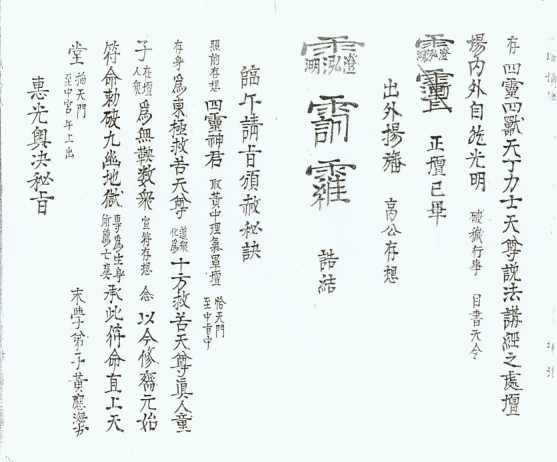 存 四靈四獸天丁力士天尊說法講經之處壇
場內外自然光明 破穢行事 目書元令
正壇已畢
出外揚旛 高公存想
誥結
臨午請旨頒赦秘訣
照前存想 四靈神君 取黃中理氣罩壇 恰天門至中宮中
存身為東極救苦天尊 道眾化為 十方救苦天尊真人童
子 在壇人衆 為無鞅數衆 宣符存想 念 以今修齋元始
符命勅破九幽地獄 專為生身所薦亡妻 承此符命直上天
堂 掐天門至中宮午上出 末學弟子黃應
惠光奧決秘旨